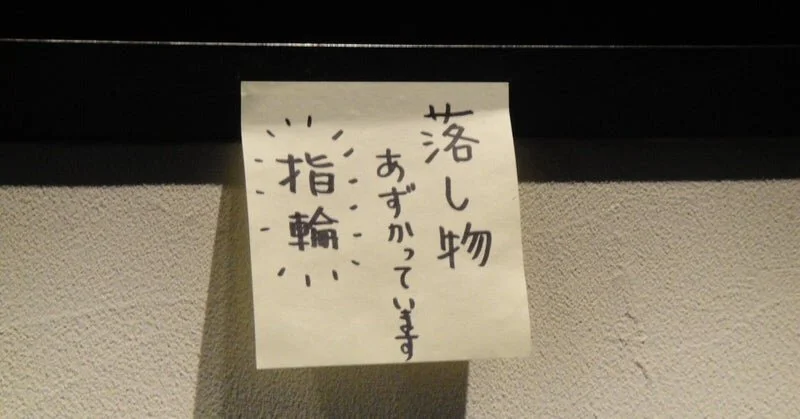 落し物
あずかっています
指輪